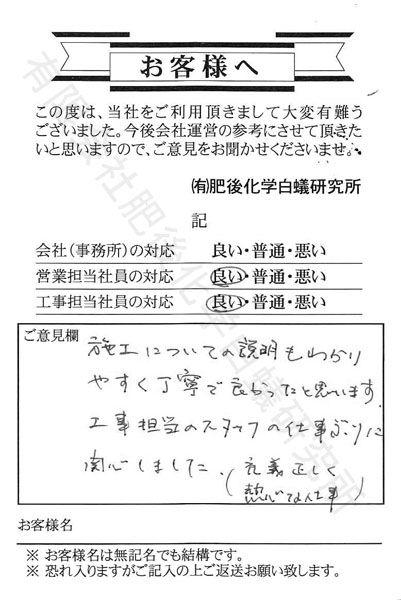 お客様へ
この度は、当社をご利用頂きまして大変有難う
ございました。今後会社運営の参考にさせて頂きた
いと思いますので、ご意見をお聞かせくださいませ。
㈲肥後化学白蟻研究所
記
会社(事務所)の対応 良い・普通・悪い
営業担当社員の対応 良い・普通・悪い
工事担当社員の対応 良い・普通・悪い
ご意見欄
施工についての説明もわかり
やすく丁寧で良かったと思います。
工事担当のスタッフの仕事ぶりに
関心しました。(礼義正しく
熱心な仕事)
お客様名
※ お客様名は無記名でも結構です。
※ 恐れ入りますがご記入の上ご返送お願い致します。
有限会社肥後化学白蟻研究所